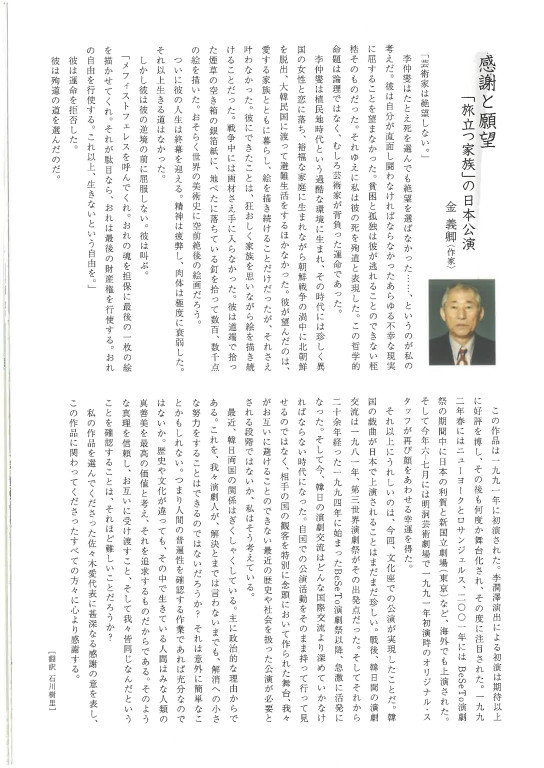 感謝と願望
「旅立つ家族」の日本公演
金 義卿(作家)
「芸術家は絶望しない。」
李仲燮はたとえ死を選んでも絶望を選ばなかった……、というのが私の
考えだ。彼は自分が直面し闘わなければならなかったあらゆる不幸な現実
に屈することを望まなかった。貧困と孤独は彼が逃れることのできない桎
梏そのものだった。それゆえに私は彼の死を殉道と表現した。この哲学的
命題は論理ではなく、むしろ芸術家が背負った運命であった。
李仲燮は植民地時代という過酷な環境に生まれ、その時代には珍しく異
国の女性と恋に落ち、裕福な家庭に生まれながら朝鮮戦争の渦中に北朝鮮
を脱出、大韓民国に渡って避難生活をするほかなかった。彼が望んだのは、
愛する家族とともに暮らし、絵を描き続けることだけだったが、それさえ
叶わなかった。彼にできたことは、狂おしく家族を思いながら絵を描き続
けることだった。戦争中には画材さえ手に入らなかった。彼は道端で拾っ
た煙草の空き箱の銀箔紙に、地べたに落ちている釘を拾って数百、数千点
の絵を描いた。おそらく世界の美術史に空前絶後の絵画だろう。
ついに彼の人生は終幕を迎える。精神は疲弊し、肉体は極度に衰弱した。
それ以上生きる道はなかった。
しかし彼は彼の逆境の前に屈服しない。彼は叫ぶ。
「メフィストフェレスを呼んでくれ。おれの魂を担保に最後の一枚の絵
を描かせてくれ。それが駄目なら、おれは最後の財産権を行使する。おれ
の自由を行使する。これ以上、生きないという自由を。」
彼は運命を拒否した。
彼は殉道の道を選んだのだ。
この作品は一九九一年に初演された。李潤澤演出による初演は期待以上
に好評を博し、その後も何度か舞台化され、その度に注目された。一九九
二年春にはニューヨークとロサンジェルス、二〇〇一年にはBeSeTo演劇
祭の期間中に日本の利賀と新国立劇場(東京)など、海外でも上演された。
そして今年六・七月には明洞芸術劇場で一九九一年初演時のオリジナル・ス
タッフが再び顔をあわせる幸運を得た。
それ以上にうれしいのは、今回、文化座での公演が実現したことだ。韓
国の戯曲が日本で上演されることはまだまだ珍しい。戦後、韓日間の演劇
交流は一九八一年、第三世界演劇祭がその出発点だった。そしてそれから
二十余年経った一九九四年に始まったBeSeTo演劇祭以降、急激に活発に
なった。そして今、韓日の演劇交流はどんな国際交流より深めていかなけ
ればならない時代になった。自国での公演活動をそのまま持って行って見
せるのではなく、相手の国の観客を特別に念頭において作られた舞台、我々
がお互いに避けることのできない最近の歴史や社会を扱った公演が必要と
される段階ではないか、私はそう考えている。
最近、韓日両国の関係はぎくしゃくしている。主に政治的な理由からで
ある。これを、我々演劇人が、解決とまでは言わないまでも、解消への小さ
な努力をすることはできるのではないだろうか? それは意外に簡単なこ
とかもしれない。つまり人間の普遍性を確認する作業であれば充分なので
はないか。歴史や文化が違っても、その中で生きている人間はみな人類の
真善美を最高の価値と考え、それを追求するものだからである。そのよう
な真理を信頼し、お互いに受け渡すこと、そして我々皆同じなんだという
ことを確認することは、それほど難しいことだろうか?
私の作品を選んでくださった佐々木愛代表に甚深なる感謝の意を表し、
この作品に関わってくださったすべての方々に心より感謝する。
[翻訳 石川樹里]